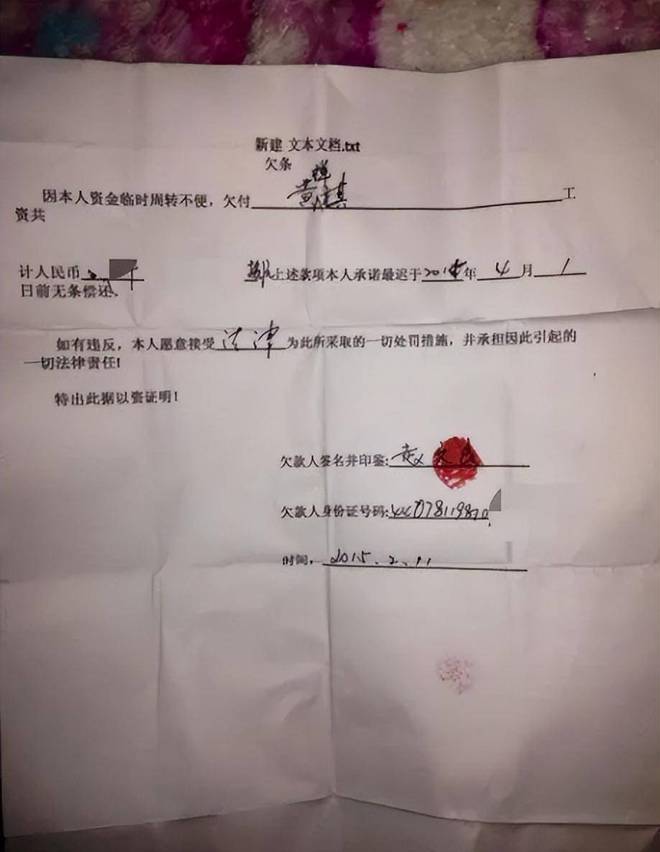 新建 文本文档.txt
欠条
因本人资金临时周转不便，欠付 黄 其 工
资共
计人民币 上述款项本人承诺最迟于2015年 4 月 1
日前无条偿还、
如有违反，本人愿意接受 法律 为此所采取的一切处罚措施，并承担因此引起的
一切法律责任！
特出此据以资证明！
欠款人签名并印鉴:
欠款人身份证号码:
时间， 2015.2.11